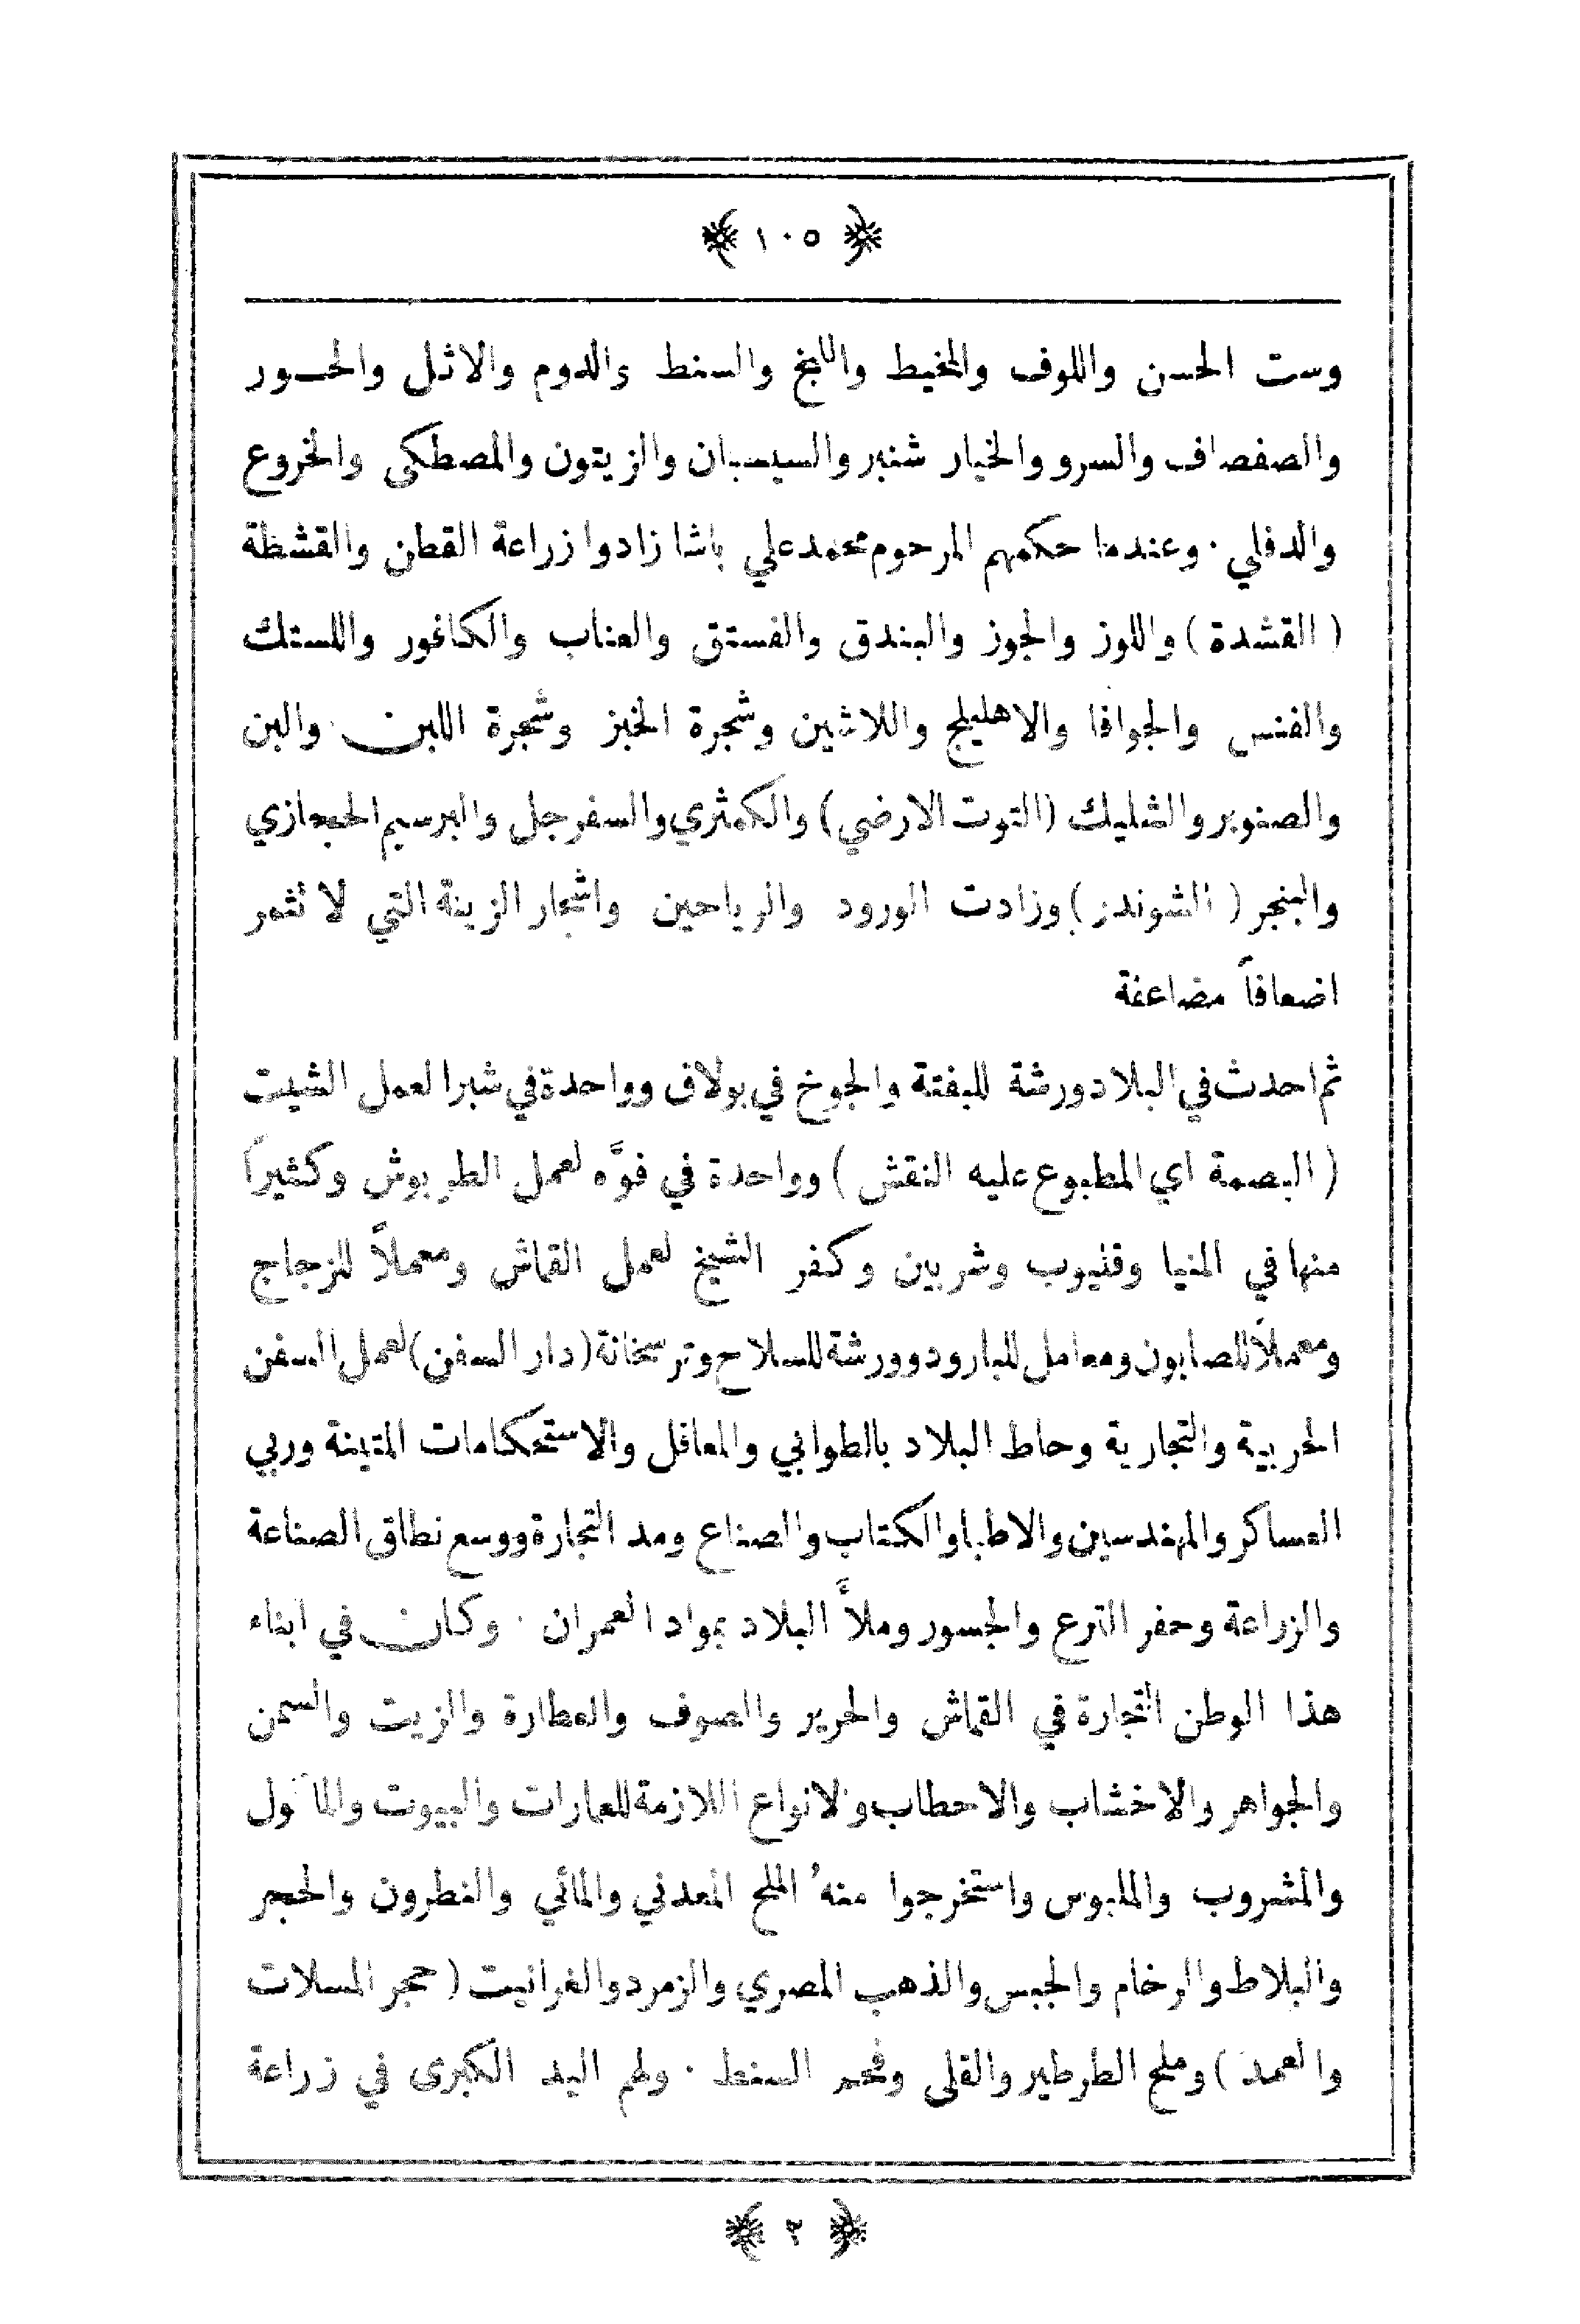 ﴿ ١٠٥ ﴾
وست الحسن واللوف والمخيط واللبخ والسنط والدوم والاثل والحور
والصفصاف والسرو والخيار شنبر والسيسبان والزيتون والمصطكى والخروع
والدفلي . وعندما حكمهم المرحوم محمد علي باشا زادوا زراعة القطن والقشطة
( القشدة ) واللوز والجوز والبندق والفستق والعناب والكافور واللستك
والفنس والجوافا والاهليلج واللاثين وشجرة الخبز وشجرة اللبن والبن
والصنوبر والشليك (التوت الارضي) والكمثري والسفرجل والبرسيم الحجازي
والبنجر ( الشوندر ) وزادت الورود والرياحين واشجار الزينة التي لا تثمر
اضعافاً مضاعفة
ثم احدث في البلاد ورشة للبفتة والجوخ في بولاق وواحدة في شبرا لعمل الشيت
( البصمة اي المطبوع عليه النقش ) وواحدة في فوَّه لعمل الطربوش وكثيراً
منها في المنيا وقليوب وشربين وكفر الشيخ لعمل القماش ومعملاً للزجاج
ومعملاً للصابون ومعامل للبارود وورشة للسلاح وترسخانة (دار السفن) لعمل السفن
الحربية والتجارية وحاط البلاد بالطوابي والمعاقل والاستحكامات المتينة وربي
العساكر والمهندسين والاطبا والكتاب والصناع ومد التجارة ووسع نطاق الصناعة
والزراعة وحفر الترع والجسور وملأَ البلاد بمواد العمران . وكان في ابناء
هذا الوطن التجارة في القماش والحرير والصوف والعطارة والزيت والسمن
والجواهر والاخشاب والاحطاب والانواع اللازمة للعمارات والبيوت والمأكول
والمشروب والملبوس واستخرجوا منهُ الملح المعدني والمائي والنطرون والحجر
والبلاط والرخام والجبس والذهب المصري والزمرد والغرانيت ( حجر المسلات
والعمد ) وملح الطرطير والقلي وفحم السنط . ولهم اليد الكبرى في زراعة
﴿ ٢ ﴾